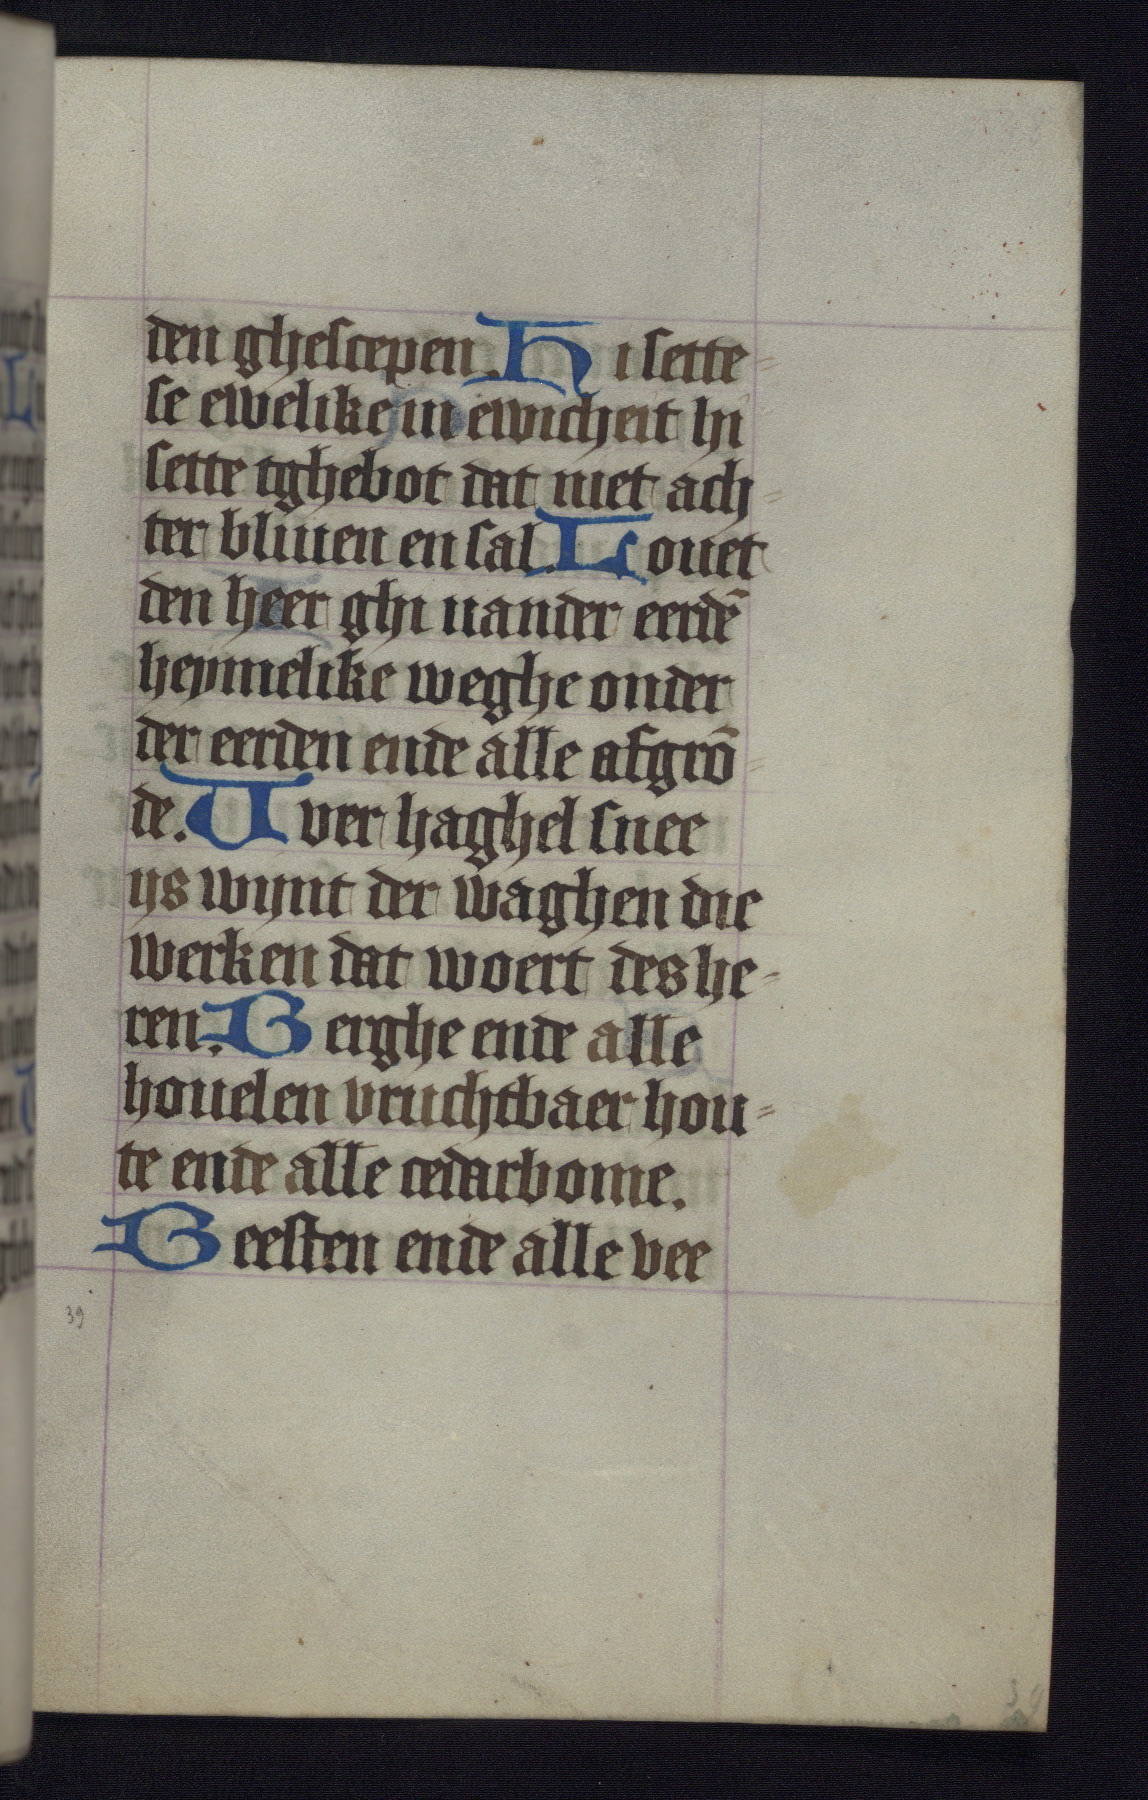 den ghescepen. Hi sette-
se ewelike in ewicheit hi
sette tghebot dat niet ach-
ter bliuen en sal. Louet
den heer ghi uander eerdē
heymelike weghe onder
der eerden ende alle afgrō-
de. Vver haghel snee
ijs wijnt der waghen die
werken dat woert des he-
ren. Berghe ende alle
houelen vruchtbaer hou-
te ende alle cedarbome.
Beesten ende alle vee
39